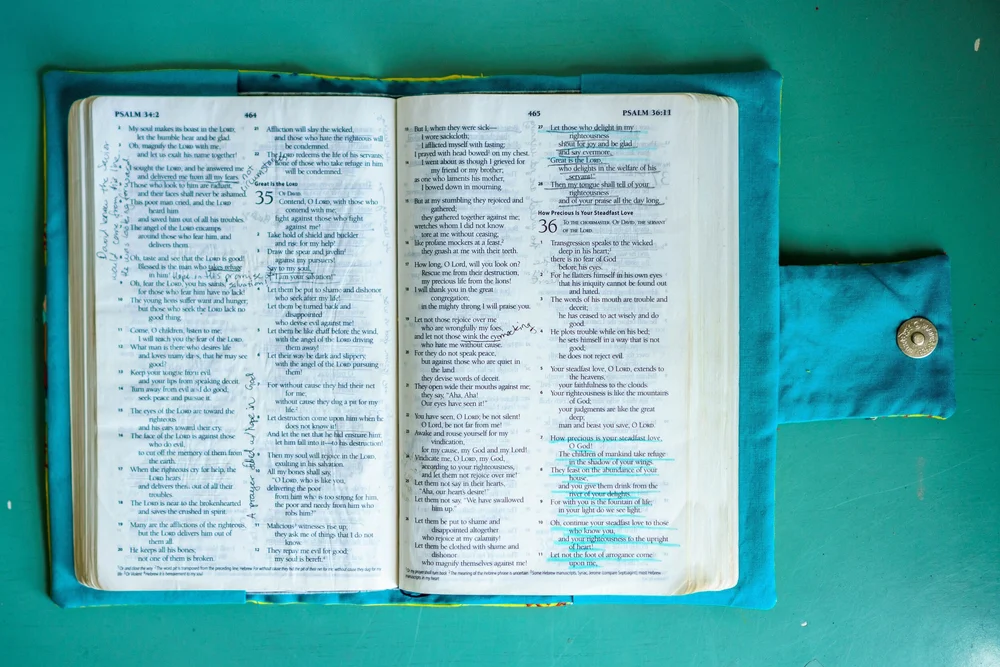 PSALM 34:2
464
2 My soul makes its boast in the LORD;
let the humble hear and be glad.
Oh, magnify the LORD with me,
and let us exalt his name together!
I sought the LORD, and he answered me
and delivered me from all my fears.
Those who look to him are radiant,
and their faces shall never be ashamed.
This poor man cried, and the LORD
heard him
and saved him out of all his troubles.
The angel of the LORD encamps
around those who fear him, and
delivers them.
Oh, taste and see that the LORD is good!
Blessed is the man who takes refuge
in him!
Hope in His promise
9 Oh, fear the LORD, you his saints,
for those who fear him have no lack!
10 The young lions suffer want and hunger;
but those who seek the LORD lack no
good thing.
11 Come, O children, listen to me;
I will teach you the fear of the LORD.
12 What man is there who desires life
and loves many days, that he may see
good?
13 Keep your tongue from evil
and your lips from speaking deceit.
14 Turn away from evil and do good;
seek peace and pursue it.
15 The eyes of the LORD are toward the
righteous
and his ears toward their cry.
16 The face of the LORD is against those
who do evil,
to cut off the memory of them from
the earth.
17 When the righteous cry for help, the
LORD hears
and delivers them out of all their
troubles.
18 The LORD is near to the brokenhearted
and saves the crushed in spirit.
19 Many are the afflictions of the righteous,
but the LORD delivers him out of
them all.
20 He keeps all his bones;
not one of them is broken.
21 Affliction will slay the wicked,
and those who hate the righteous will
be condemned.
22 The LORD redeems the life of his servants;
none of those who take refuge in him
will be condemned.
Great Is the LORD
35 OF DAVID.
Contend, O LORD, with those who
contend with me;
fight against those who fight
against me!
2 Take hold of shield and buckler
and rise for my help!
3 Draw the spear and javelin
against my pursuers!
Say to my soul,
"I am your salvation!"
4 Let them be put to shame and dishonor
who seek after my life!
Let them be turned back and
disappointed
who devise evil against me!
5 Let them be like chaff before the wind,
with the angel of the LORD driving
them away!
6 Let their way be dark and slippery,
with the angel of the LORD pursuing
them!
7 For without cause they hid their net
for me;
without cause they dug a pit for my
life.
8 Let destruction come upon him when he
does not know it!
And let the net that he hid ensnare him;
let him fall into it—to his destruction!
9 Then my soul will rejoice in the LORD,
exulting in his salvation.
10 All my bones shall say,
"O LORD, who is like you,
delivering the poor
from him who is too strong for him,
the poor and needy from him who
robs him?"
11 Malicious witnesses rise up;
they ask me of things that I do not
know.
12 They repay me evil for good;
my soul is bereft.
a prayer filled w/ hope in God
465
PSALM 36:11
13 But I, when they were sick—
I wore sackcloth;
I afflicted myself with fasting;
I prayed with head bowed on my chest.
14 I went about as though I grieved for
my friend or my brother;
as one who laments his mother,
I bowed down in mourning.
15 But at my stumbling they rejoiced and
gathered;
they gathered together against me;
wretches whom I did not know
tore at me without ceasing;
16 like profane mockers at a feast,
they gnash at me with their teeth.
17 How long, O Lord, will you look on?
Rescue me from their destruction,
my precious life from the lions!
18 I will thank you in the great
congregation;
in the mighty throng I will praise you.
19 Let not those rejoice over me
who are wrongfully my foes,
and let not those wink the eye
who hate me without cause.
mocking
20 For they do not speak peace,
but against those who are quiet in
the land
they devise words of deceit.
21 They open wide their mouths against me;
they say, "Aha, Aha!
Our eyes have seen it!"
22 You have seen, O LORD; be not silent!
O Lord, be not far from me!
23 Awake and rouse yourself for my
vindication,
for my cause, my God and my Lord!
24 Vindicate me, O LORD, my God,
according to your righteousness,
and let them not rejoice over me!
25 Let them not say in their hearts,
"Aha, our hearts' desire!"
Let them not say, "We have swallowed
him up."
26 Let them be put to shame and
disappointed altogether
who rejoice at my calamity!
Let them be clothed with shame and
dishonor
who magnify themselves against me!
27 Let those who delight in my
righteousness
shout for joy and be glad
and say evermore,
"Great is the LORD,
who delights in the welfare of his
servant!"
28 Then my tongue shall tell of your
righteousness
and of your praise all the day long.
How Precious Is Your Steadfast Love
36 TO THE CHOIRMASTER. OF DAVID, THE SERVANT
OF THE LORD.
1 Transgression speaks to the wicked
deep in his heart;
there is no fear of God
before his eyes.
2 For he flatters himself in his own eyes
that his iniquity cannot be found out
and hated.
3 The words of his mouth are trouble and
deceit;
he has ceased to act wisely and do
good.
4 He plots trouble while on his bed;
he sets himself in a way that is not
good;
he does not reject evil.
5 Your steadfast love, O LORD, extends to
the heavens,
your faithfulness to the clouds.
6 Your righteousness is like the mountains
of God;
your judgments are like the great
deep;
man and beast you save, O LORD.
7 How precious is your steadfast love,
O God!
The children of mankind take refuge
in the shadow of your wings.
8 They feast on the abundance of your
house,
and you give them drink from the
river of your delights.
9 For with you is the fountain of life;
in your light do we see light.
10 Oh, continue your steadfast love to those
who know you,
and your righteousness to the upright
of heart!
11 Let not the foot of arrogance come
upon me,